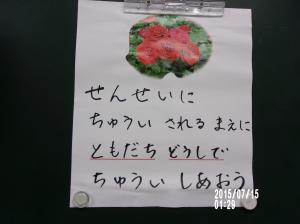 せんせいに
ちゅうい される まえに
ともだち どうしで
ちゅうい しあおう
2015/07/15
01:29